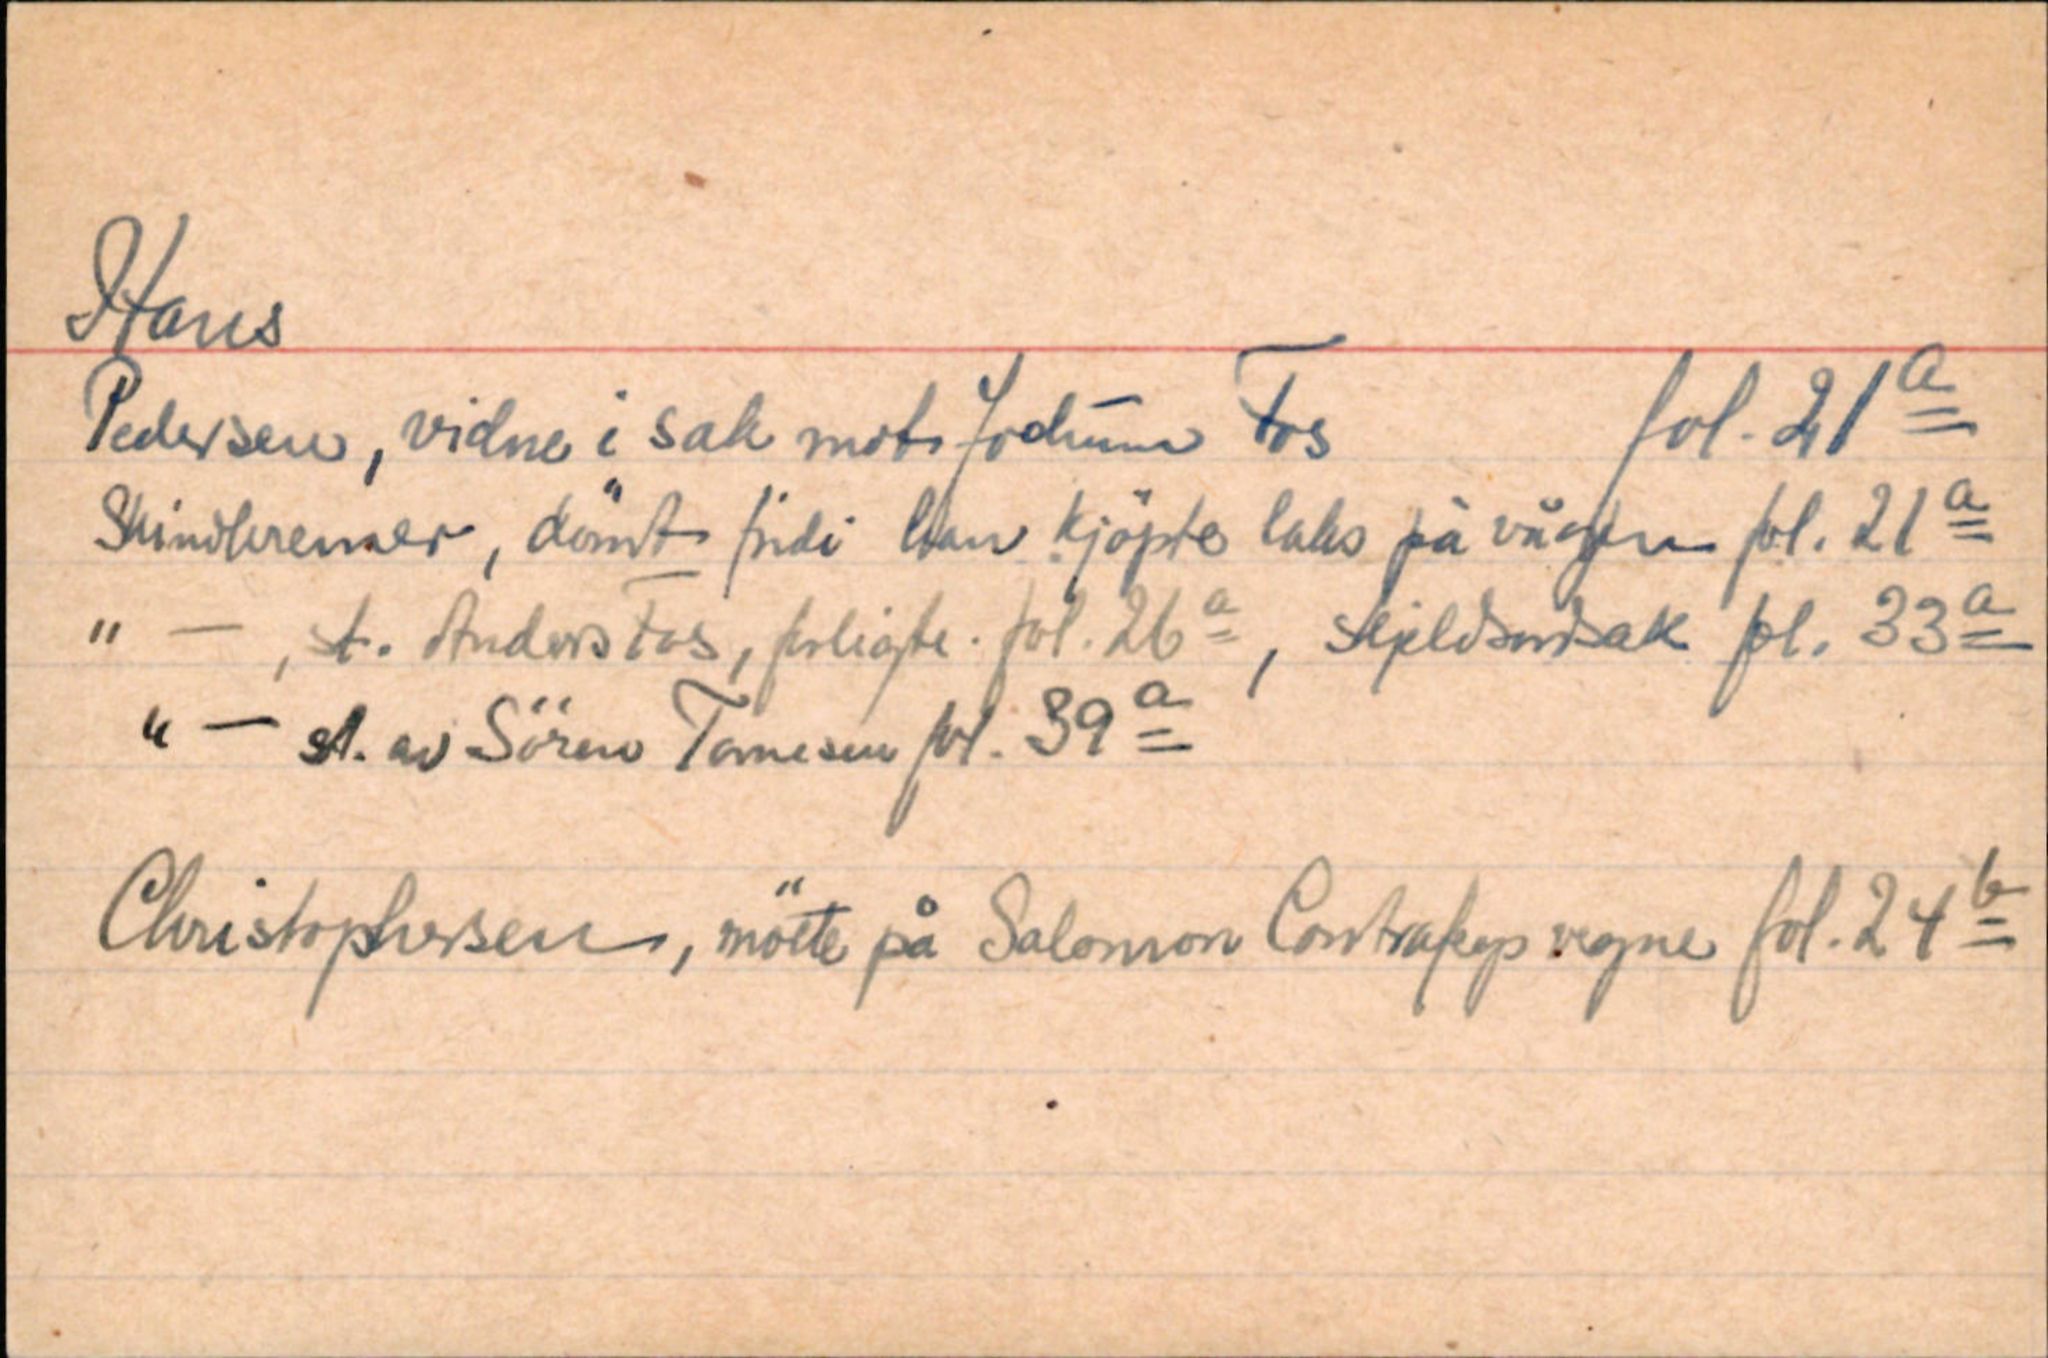 Hans
Pedersen, vidne i sak mot Jochum Fos fol. 21a
Skindkremer, dömt fordi han kjöpte laks på vågen fol. 21a
" — , st. Anders Fos, forligte. fol. 26a, skjeldsordsak fol. 33a
" — st. av Sören Tomesen fol. 39a
Christophersen, mötte på Salomon Contrafeys vegne fol. 24b